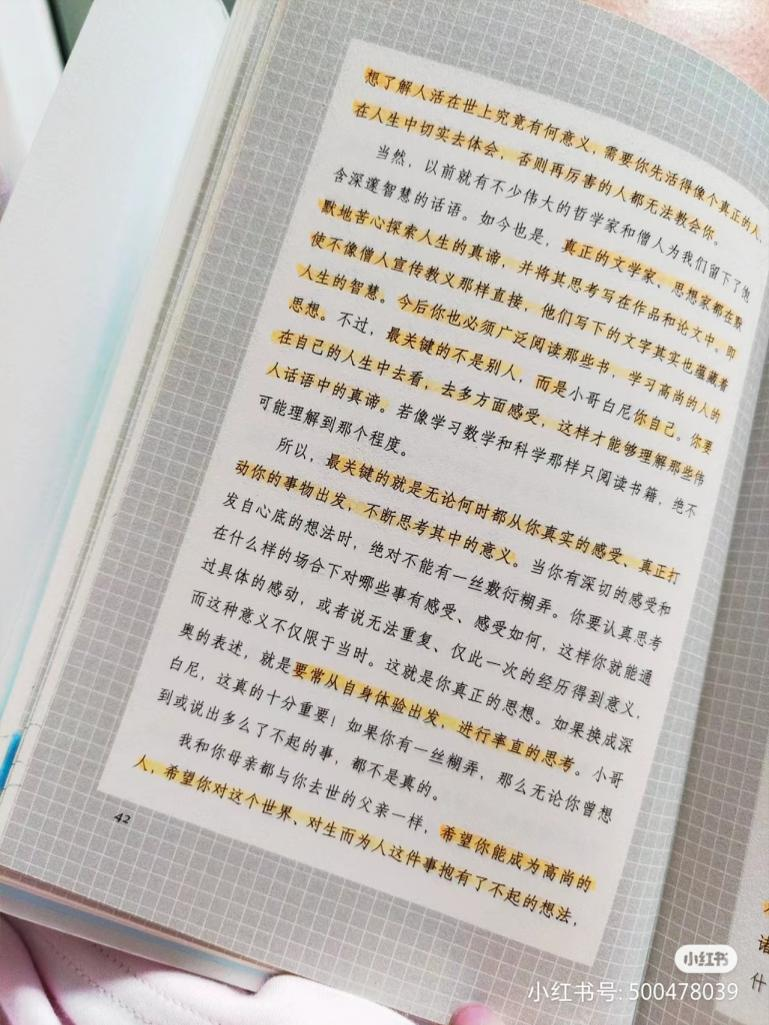 想了解人活在世上究竟有何意义，需要你先活得像个真正的人，
在人生中切实去体会，否则再厉害的人都无法教会你。
当然，以前就有不少伟大的哲学家和僧人为我们留下了饱
含深邃智慧的话语。如今也是，真正的文学家、思想家都在默
默地苦心探索人生的真谛，并将其思考写在作品和论文中。即
使不像僧人宣传教义那样直接，他们写下的文字其实也蕴藏着
人生的智慧。今后你也必须广泛阅读那些书，学习高尚的人的
思想。不过，最关键的不是别人，而是小哥白尼你自己。你要
在自己的人生中去看，去多方面感受，这样才能够理解那些伟
人话语中的真谛。若像学习数学和科学那样只阅读书籍，绝不
可能理解到那个程度。
所以，最关键的就是无论何时都从你真实的感受、真正打
动你的事物出发，不断思考其中的意义。当你有深切的感受和
发自心底的想法时，绝对不能有一丝敷衍糊弄。你要认真思考
在什么样的场合下对哪些事有感受、感受如何，这样你就能通
过具体的感动，或者说无法重复、仅此一次的经历得到意义，
而这种意义不仅限于当时。这就是你真正的思想。如果换成深
奥的表述，就是要常从自身体验出发，进行率直的思考。小哥
白尼，这真的十分重要！如果你有一丝糊弄，那么无论你曾想
到或说出多么了不起的事，都不是真的。
我和你母亲都与你去世的父亲一样，希望你能成为高尚的
人，希望你对这个世界、对生而为人这件事抱有了不起的想法，
42
诸
什
小红书
小红书号: 500478039